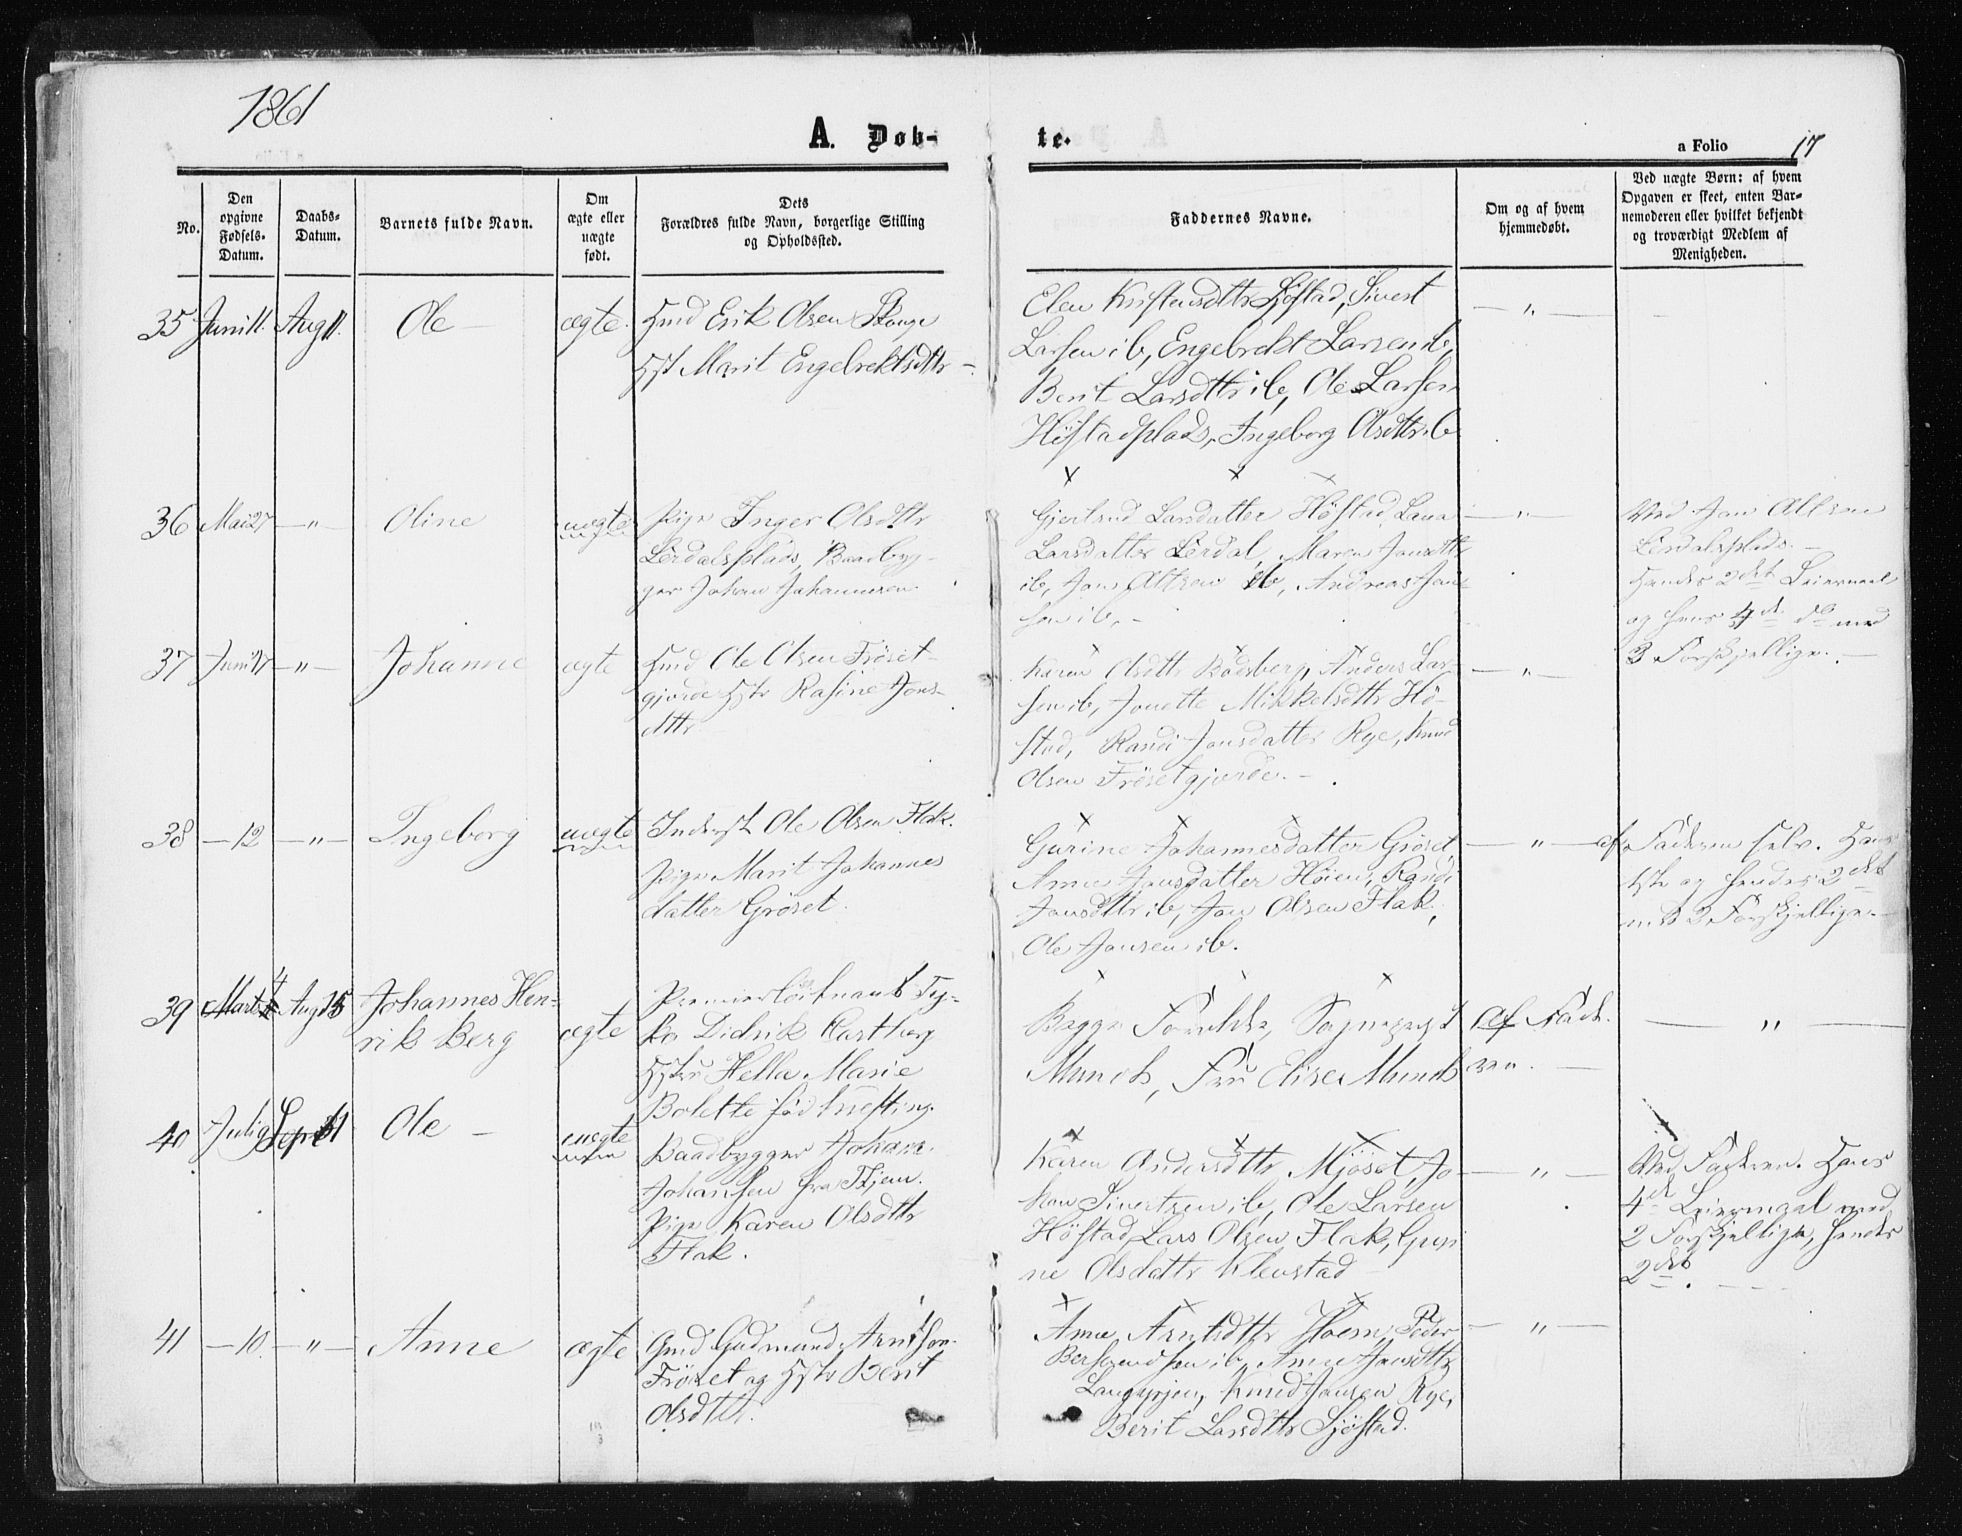 1861
A. Døb-
te.
a Folio 17
No.
Den
opgivne
Fødsels-
Datum.
Daabs-
Datum.
Barnets fulde Navn.
Om
ægte eller
uægte
født.
Dets
Forældres fulde Navn, borgerlige Stilling
og Opholdssted.
Faddernes Navne.
Om og af hvem
hjemmedøbt.
Ved uægte Børn: af hvem
Opgaven er skeet, enten Bar-
nemoderen eller hvilket bekjendt
og troværdigt Medlem af
Menigheden.
35 Juni 11. Aug 11. Ole – ægte.
Erik Olsen
Marit Engelbrektsdttr –
Elen Kristensdttr Sjøstad, Sivert
Larsen ib, Engebrekt Larsen ib,
Berit Larsdttr ib, Ole Larsen
Høstadplads, Ingeborg Olsdttr ib
— " —
36 Mai 27 — " — Oline uægte
Pige Inger Olsdttr
Lerdalsplads, Baadbyg-
ger Johan Johannesen
Gjertrud Larsdatter Høstad, Lava
Larsdatter Lerdal, Maren Jonsdttr
ib, Jon Altsen ib, Andreas Jon-
sen ib. –
— " —
Ved Jon Altsen
Lerdalsplads. –
Hendes 2det Leiermaal
og hans 4de do med
3 Forskjellige. –
37 Juni 27 — " — Johanne ægte
Ole Olsen Frøset-
gjerde Rasine Jons-
dttr
Karen Olsdttr Bodsberg, Anders Lar-
sen ib, Jonette Mikkelsdttr Hø-
stad, Randi Jonsdatter Rye, Knud
Olsen Frøsetgjerde. –
— " —
38 — 12 — " — Ingeborg uægte
Inderst Ole Olsen Flak.
Pige Marit Johannes
datter Grøset.
Gurine Johannesdatter Grøset
Anne Jonsdatter Høien, Randi
Jonsdttr ib, Jon Olsen Flak,
Ole Jonsen ib.
— " —
af Faderen selv. Hans
1ste og hendes 2det
med 2 Forskjellige. –
39 Marts 4 Aug 15 Johannes Hen-
rik Berg ægte
Premierløitnant Ty-
ko Didrik Castberg
Hella Marie
Bolette født Kiefting.
Begge Forældre, Sogneprest
Munch, Fru Elise Munch
Af Fade-
ren. —
— " —
40 Juli 9 Septr 1 Ole – uægte
Baadbygger Johan
Johansen fra
Pige Karen Olsdttr
Flak.
Karen Andersdttr Mjøset, Jo-
han Sivertsen ib, Ole Larsen
Høstad, Lars Olsen Flak, Guri-
ne Olsdattr Klevstad
— " —
Ved Faderen. Hans
4de Leiermaal med
2 Forskjellige, hendes
2det. —
41 — 10. — " — Anne ægte
Gmd Gudmund Arntsen
Frøset og Berit
Olsdttr.
Anne Arntsdttr Peder
ib, Anne Jonsdttr
Knud Jonsen Rye,
Berit Larsdttr Sjøstad.
— " —